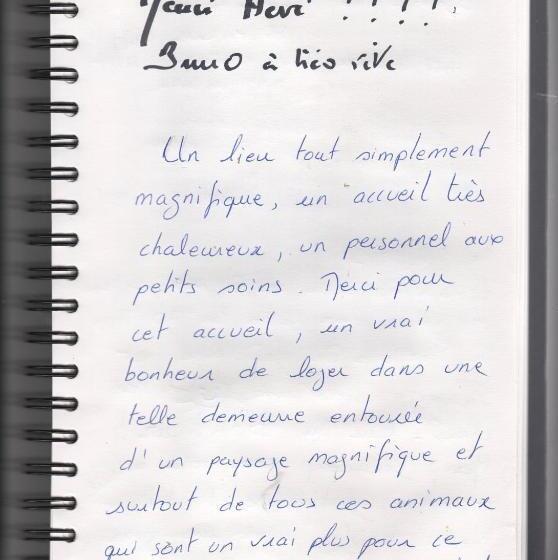 Merci Hervé !!!!
Bruno à très vite
Un lieu tout simplement
magnifique, un accueil très
chaleureux, un personnel aux
petits soins. Merci pour
cet accueil, un vrai
bonheur de loger dans une
telle demeure entourée
d'un paysage magnifique et
surtout de tous ces animaux
qui sont un vrai plus pour ce